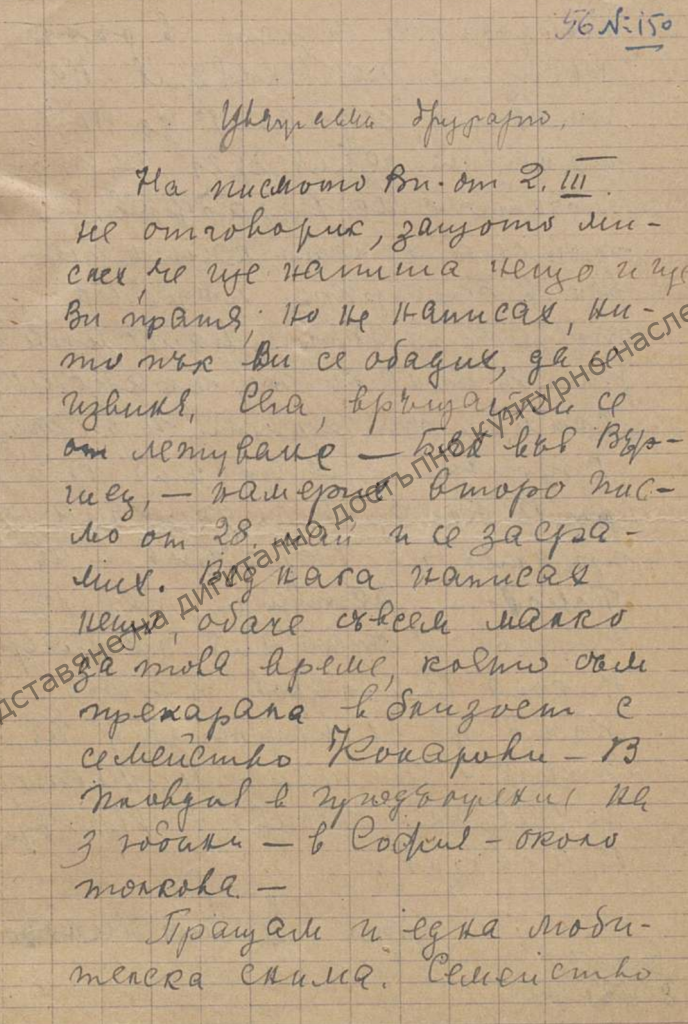 56 № 150
Уважаеми другарю,
На писмото Ви от 2. III.
не отговорих, защото ми-
слех, че ще напиша нещо и ще
Ви пратя, но не написах, ни-
то пък Ви се обадих, да се
извиня. Сега, връщайки се
от летуване – Бях във Вър-
шец, – намерих второ пис-
мо от 28. май и се засра-
мих. Веднага написах
нещо, обаче съвсем малко
за това време, което съм
прекарала в близост с
семейство Комарови – В
Пловдив в продължение на
3 години – в София – около
толкова –
Пращам и една люби-
телска снимка. Семейство